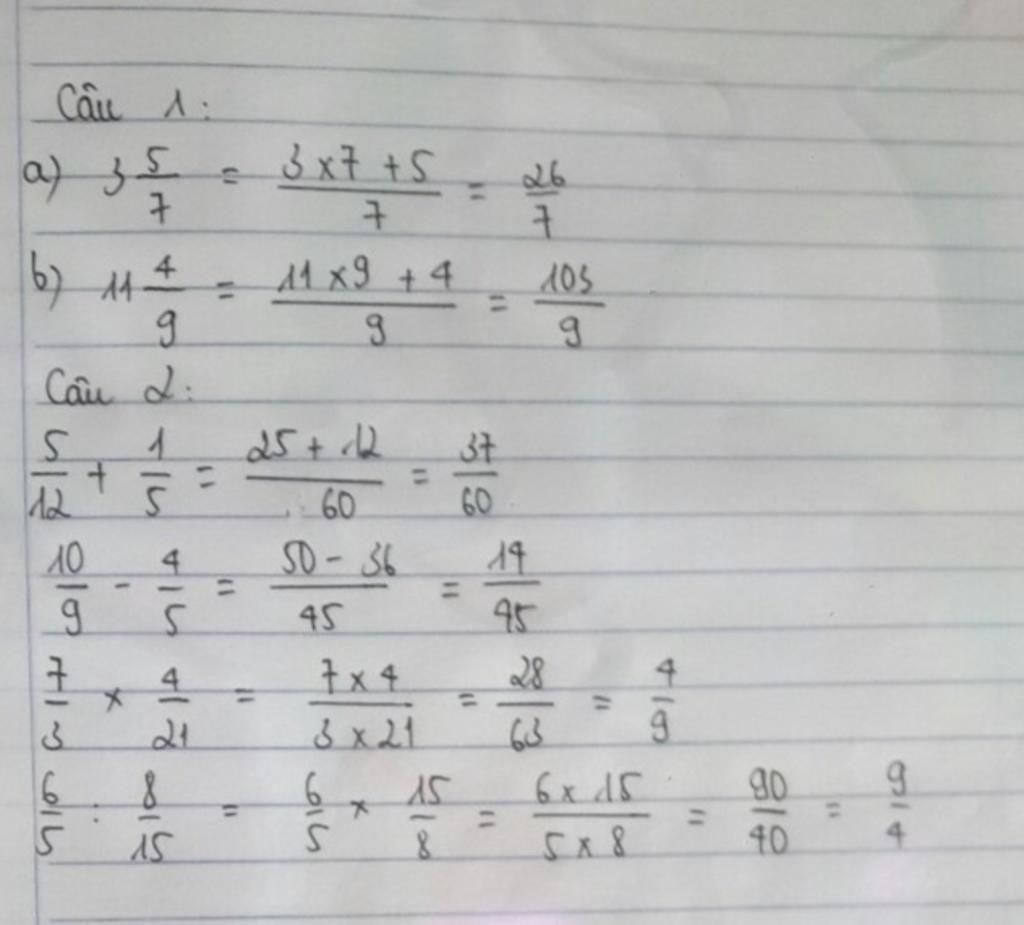 Câu 1:
a) 3 5/7 = (3 x 7 + 5)/7 = 26/7
b) 11 4/9 = (11 x 9 + 4)/9 = 103/9
Câu 2:
5/12 + 1/5 = (25 + 12)/60 = 37/60
10/9 - 4/5 = (50 - 36)/45 = 14/45
7/3 x 4/21 = (7 x 4)/(3 x 21) = 28/63 = 4/9
6/5 : 8/15 = 6/5 x 15/8 = (6 x 15)/(5 x 8) = 90/40 = 9/4